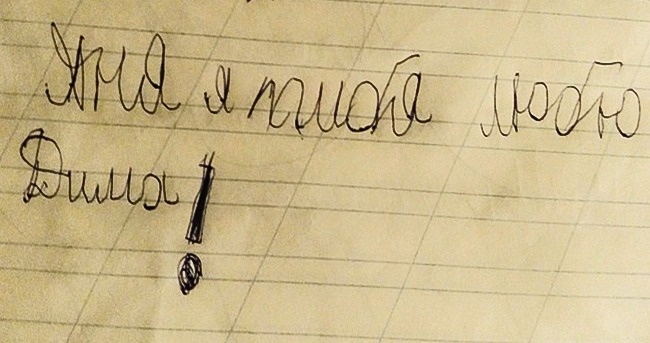 Аня я тибя любю
Дима!